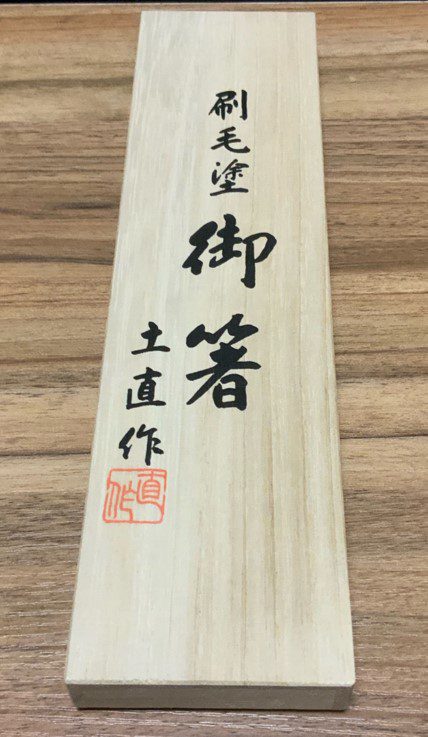 刷毛塗
御箸
土直作
直作